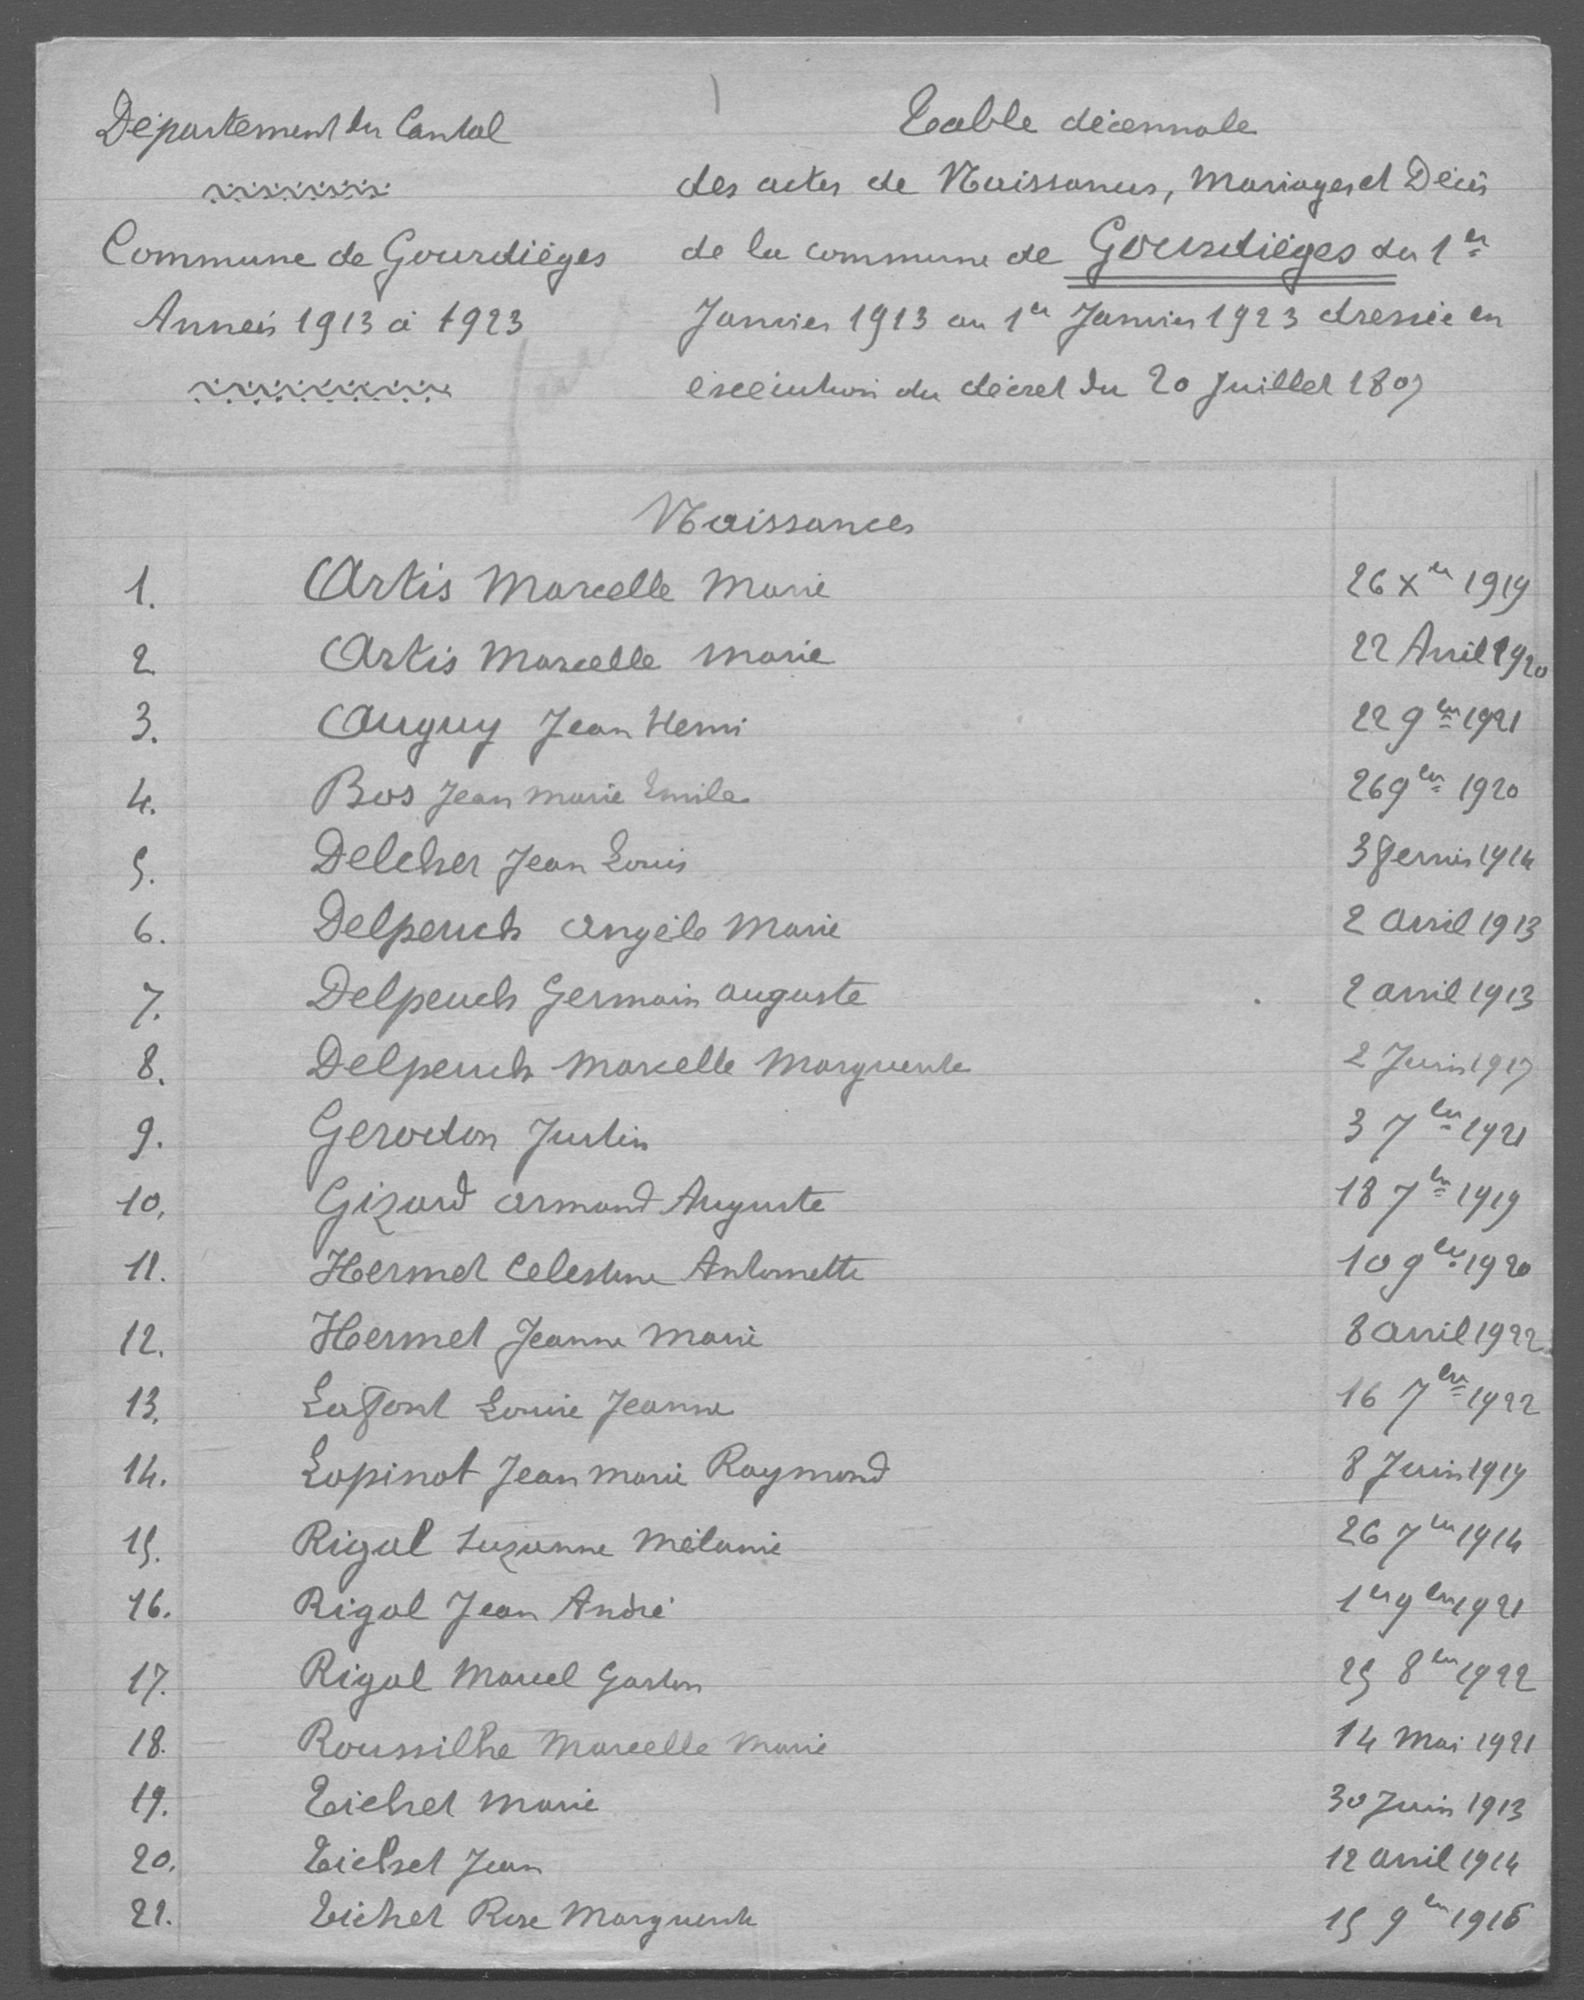 Département du Cantal
Commune de Gourdièges
Années 1913 à 1923
Table décennale
des actes de Naissances, Mariages et Décès
de la commune de Gourdièges du 1er
Janvier 1913 au 1er Janvier 1923 dressée en
exécution du décret du 20 Juillet 1807
Naissances
1. Artis Marcelle Marie 26 Xer 1919
2 Artis Marcelle Marie 22 Avril 1920
3. Auguy Jean Henri 22 9bre 1921
4. Bos Jean Marie Emile 26 9bre 1920
5. Delcher Jean Louis 3 Fevrier 1914
6. Delpeuch Angèle Marie 2 avril 1913
7. Delpeuch Germain Auguste 2 avril 1913
8. Delpeuch Marcelle Marguerite 2 Juin 1917
9. Gerodon Justin 3 7bre 1921
10. Gizard Armand Auguste 18 7bre 1919
11. Hermet Celestine Antoinette 10 9bre 1920
12. Hermet Jeanne Marie 8 avril 1922
13. Lafont Louise Jeanne 16 7bre 1922
14. Lapinot Jean Marie Raymond 8 Juin 1919
15. Rigal Suzanne Mélanie 26 7bre 1914
16. Rigal Jean André 1er 9bre 1921
17. Rigal Marcel Gaston 25 8bre 1922
18. Roussilhe Marcelle Marie 14 Mai 1921
19. Tichet Marie 30 Juin 1913
20. Tichet Jean 12 avril 1914
21. Tichet Rose Marguerite 15 9bre 1916